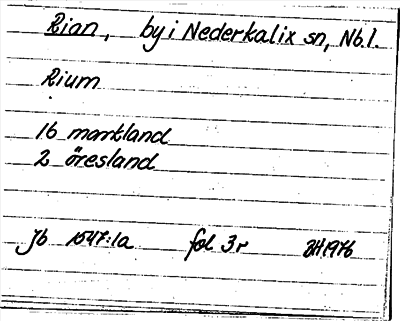 Rian, by i Nederkalix sn, Nb.l.
Rium
16 markland
2 öresland
Jb 1547:1a fol 3r 1976